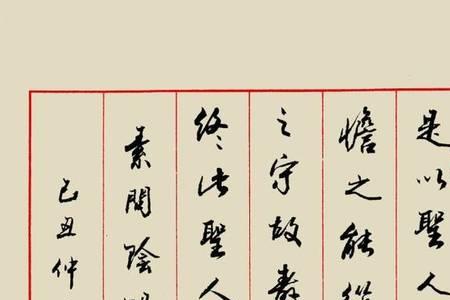 是以聖人
憺之能從
之守故壽
終此聖人
素問陰陽
己丑仲